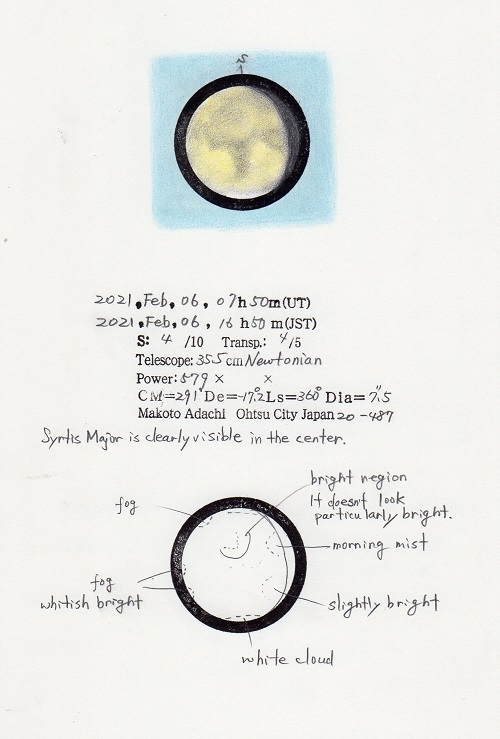 S
2021, Feb, 06, 07h50m(UT)
2021, Feb, 06, 16 h50 m(JST)
S: 4 /10 Transp.: 4/5
Telescope: 35.5cm Newtonian
Power: 579 × ×
CM=291° De=-17.2° Ls=360° Dia=7.″5
Makoto Adachi Ohtsu City Japan 20-487
Syrtis Major is clearly visible in the center.
bright region
It doesn't look
particularly bright.
fog
morning mist
fog
whitish bright
slightly bright
white cloud